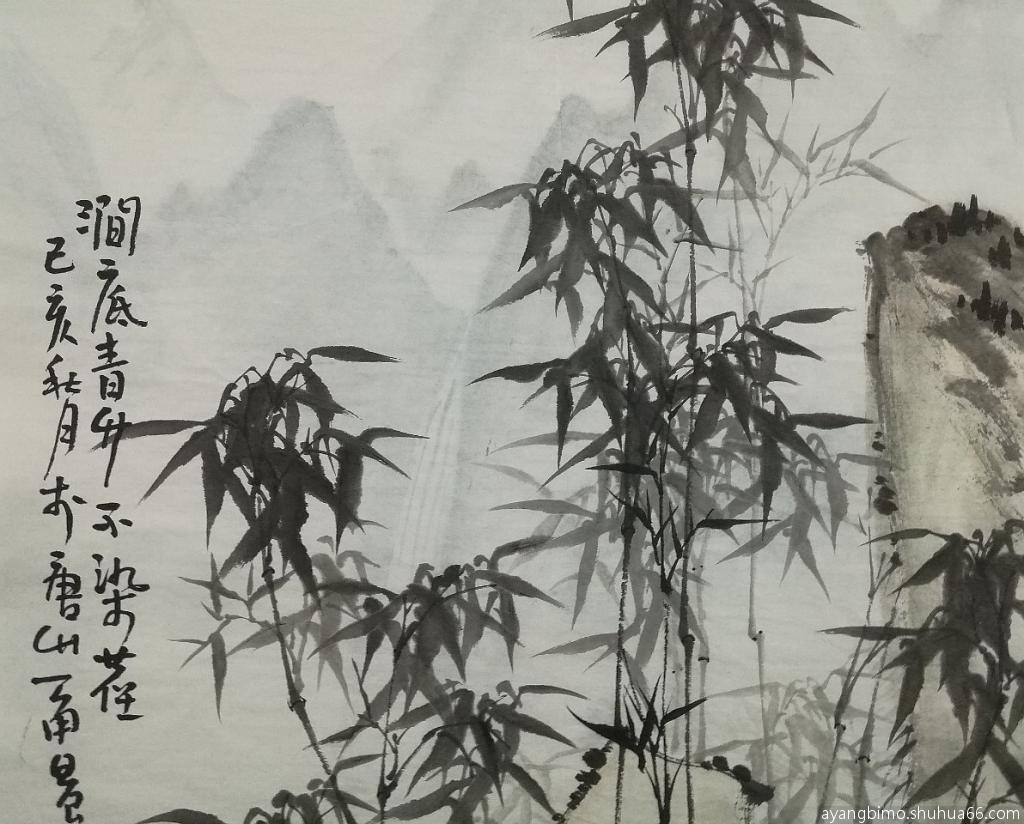 涧底青竹不染尘
己亥秋月于唐山
ayangbimo.shuhua66.com